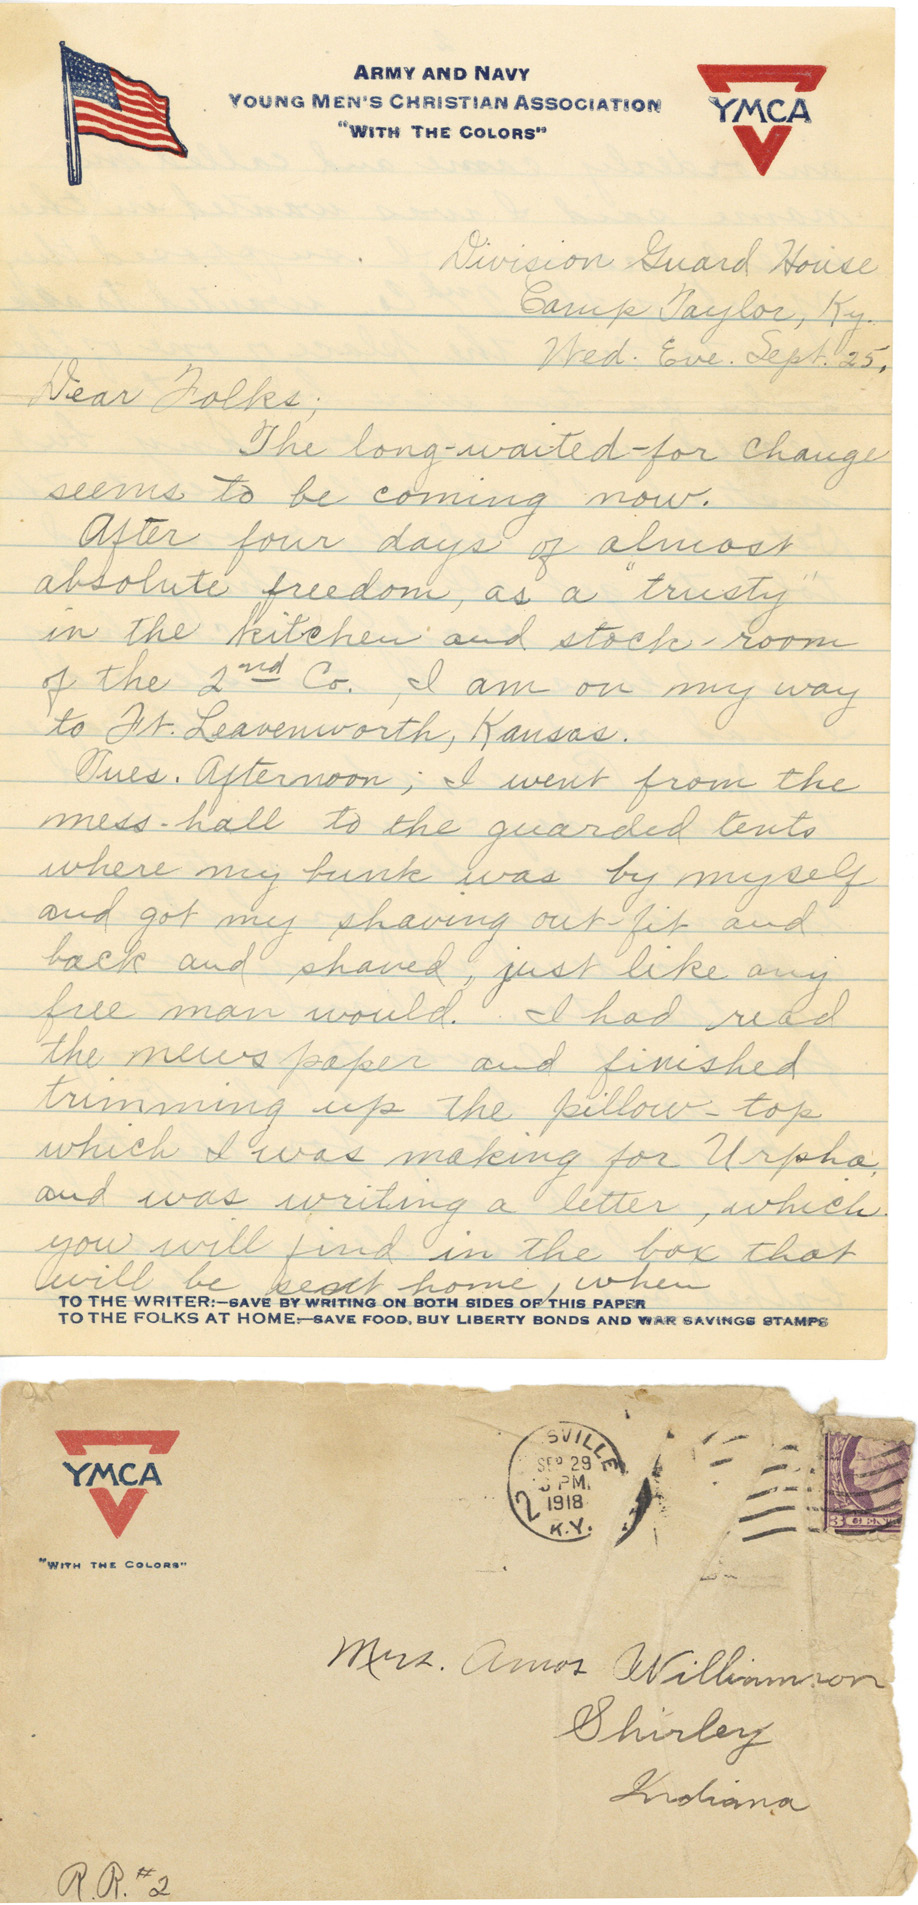 ARMY AND NAVY
YOUNG MEN'S CHRISTIAN ASSOCIATION
"WITH THE COLORS"
YMCA
Division Guard House
Camp Taylor, Ky.
Wed. Eve. Sept. 25,
Dear Folks;
The long-waited-for change
seems to be coming now.
After four days of almost
absolute freedom, as a "trusty"
in the kitchen and stock-room
of the 2nd Co., I am on my way
to Ft. Leavenworth, Kansas.
Tues. Afternoon; I went from the
mess-hall to the guarded tents
where my bunk was by myself
and got my shaving out-fit and
back and shaved, just like any
free man would. I had read
the news paper and finished
trimming up the pillow-top
which I was making for Urpha,
and was writing a letter, which
you will find in the box that
will be sent home, when
TO THE WRITER:—SAVE BY WRITING ON BOTH SIDES OF THIS PAPER
TO THE FOLKS AT HOME:—SAVE FOOD, BUY LIBERTY BONDS AND WAR SAVINGS STAMPS
YMCA
"WITH THE COLORS"
SVILLE
SEP 29
PM
1918
2
K.Y.
3 CENT
Mrs. Amos Williamson
Shirley
Indiana
R.R. #2